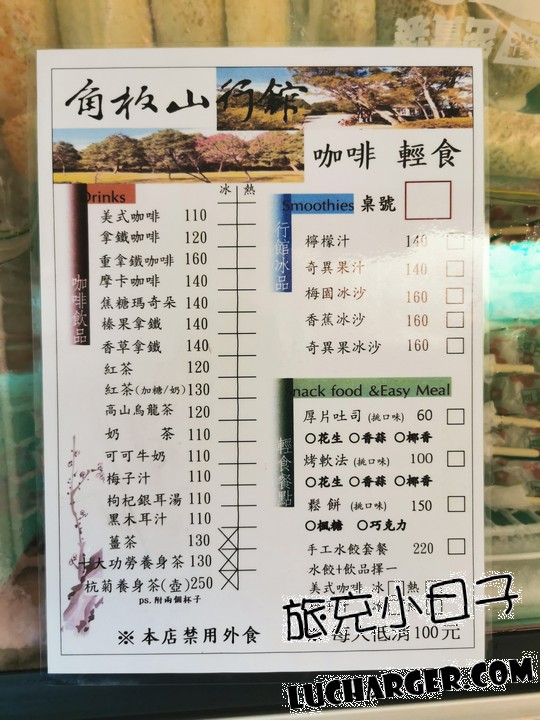 角板山行館
咖啡 輕食
Drinks
冰 熱
咖啡飲品
美式咖啡 110
拿鐵咖啡 120
重拿鐵咖啡 160
摩卡咖啡 140
焦糖瑪奇朵 140
榛果拿鐵 140
香草拿鐵 140
紅茶 120
紅茶(加糖/奶) 130
高山烏龍茶 120
奶 茶 110
可可牛奶 110
梅子汁 110
枸杞銀耳湯 110
黑木耳汁 110
薑茶 130
十大功勞養身茶 130
杭菊養身茶(壺) 250
ps. 附兩個杯子
※ 本店禁用外食
Smoothies 桌號
行館冰品
檸檬汁 140
奇異果汁 140
梅園冰沙 160
香蕉冰沙 160
奇異果冰沙 160
Snack food &Easy Meal
輕食餐點
厚片吐司 (挑口味) 60
○花生 ○香蒜 ○椰香
烤軟法 (挑口味) 100
○花生 ○香蒜 ○椰香
鬆餅 (挑口味) 150
○楓糖 ○巧克力
手工水餃套餐 220
水餃+飲品擇一
美式咖啡 冰 熱
※ 每人低消100元
旅充小日子
LUCHARGER.COM